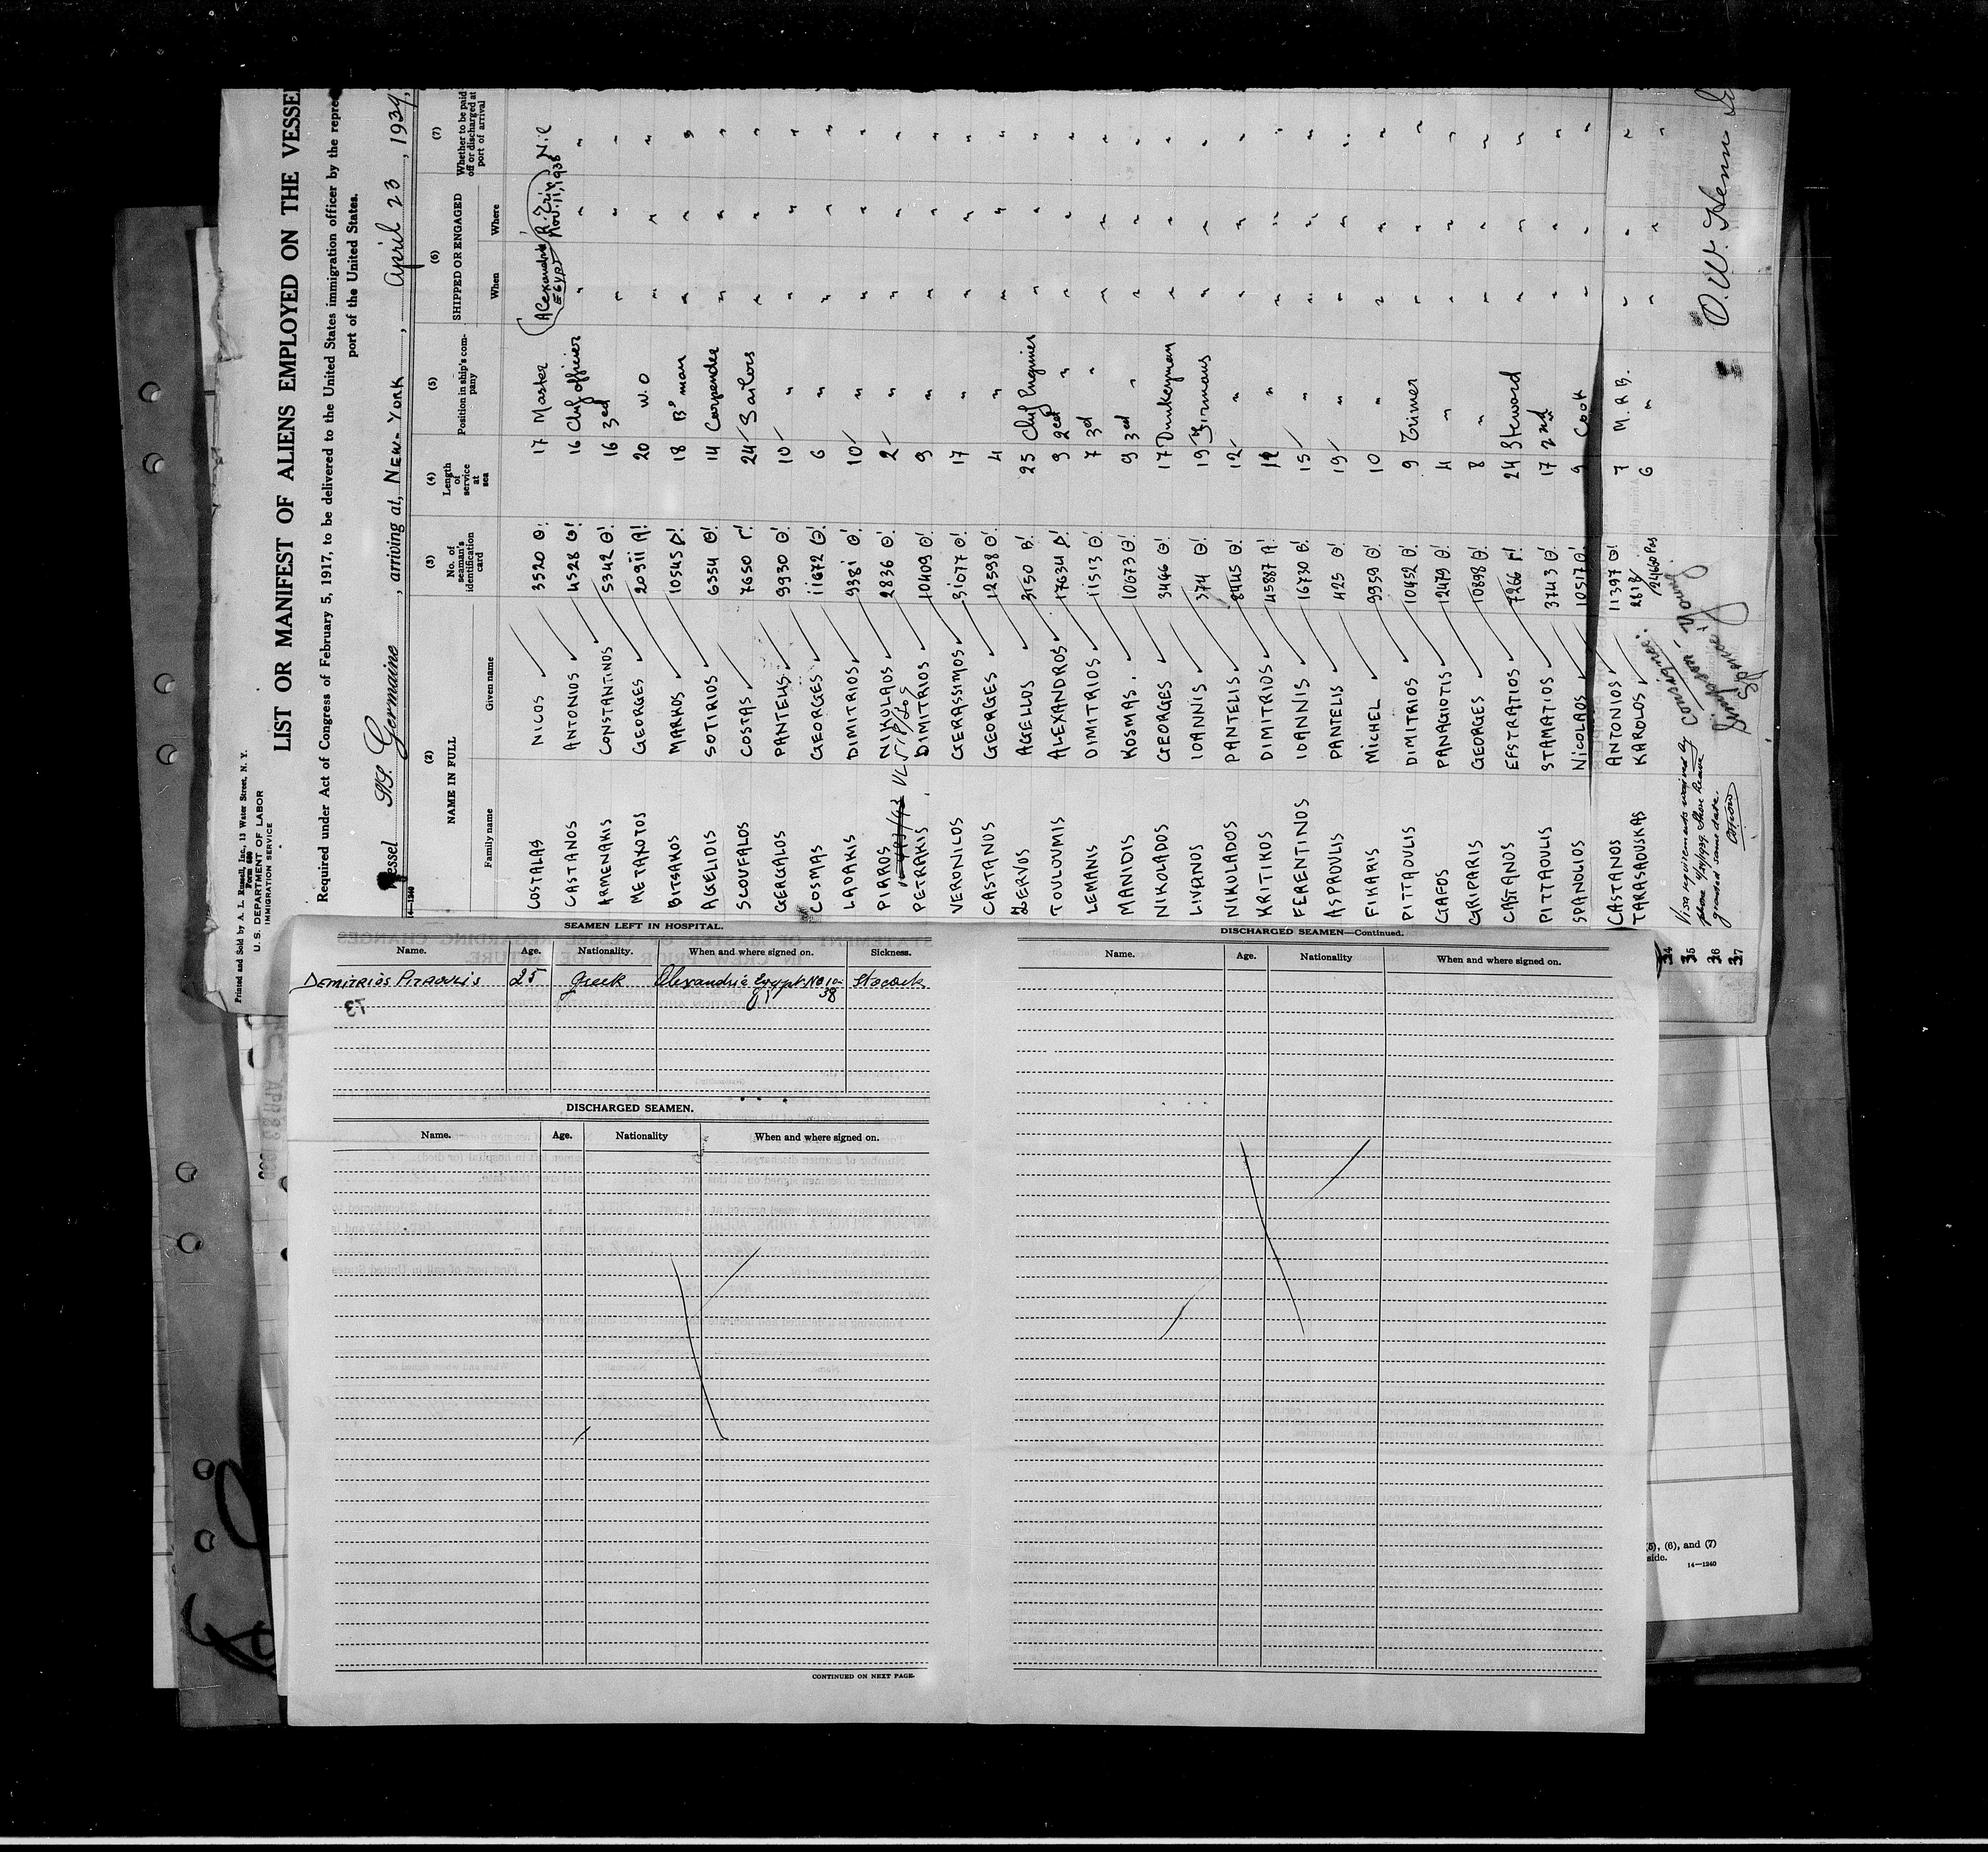 Printed and Sold by A. L. Russell, Inc., 13 Water Street, N. Y.
Form 680
U. S. DEPARTMENT OF LABOR
IMMIGRATION SERVICE
LIST OR MANIFEST OF ALIENS EMPLOYED ON THE VESSEL
Required under Act of Congress of February 5, 1917, to be delivered to the United States immigration officer by the repre
port of the United States.
Vessel SS. Germaine, arriving at, NEW-YORK, April 23, 1939,
14—1240
(2) (3) (4) (5) (6) (7)
NAME IN FULL No. of seaman's identification card Length of service at sea Position in ship's company SHIPPED OR ENGAGED Whether to be paid off or discharged at port of arrival
Family name Given name When Where
COSTALAS NICOS 3520 Θ! 17 Master Alexandria EGYPT Nov. 11, 1938 Nil
CASTANOS ANTONIOS 4528 Θ! 16 Chf officer " " "
ARMENAKIS CONSTANTINOS 5342 Θ! 16 3ed " " "
METAXOTOS GEORGES 20911 A! 20 W.O " " "
BITSAKOS MARKOS 10545 Δ! 18 Bs man " " "
AGELIDIS SOTIRIOS 6354 Θ! 14 Carpender " " "
SCOUFALOS COSTAS 7650 Γ! 24 Sailors " " "
GERGALOS PANTELIS 9930 Θ! 10 " " " "
COSMAS GEORGES 11672 Θ! 6 " " " "
LADAKIS DIMITRIOS 9381 Θ! 10 " " " "
PIAROS NIKOLAOS 2836 Θ! 2 " " " "
PETRAKIS DIMITRIOS 10409 Θ! 9 " " " "
VERONICOS GERASSIMOS 31077 Θ! 17 " " " "
CASTANOS GEORGES 12598 Θ! 4 " " " "
ZERVOS AGELLOS 3150 B! 25 Chf Enginier " " "
TOULOUMIS ALEXANDROS 17634 Δ! 9 2ed " " " "
LEMANIS DIMITRIOS 11513 Θ! 7 3d " " " "
MANIDIS KOSMAS. 10673 Θ! 9 3ed " " " "
NIKOLADOS GEORGES 3466 Θ! 17 Dunkeyman " " "
LIVANOS IOANNIS 374 Θ! 19 Firmans " " "
NIKOLADOS PANTELIS 8445 Θ! 12 " " " "
KRITIKOS DIMITRIOS 45887 A! 12 " " " "
FERENTINOS IOANNIS 16730 B! 15 " " " "
ASPROULIS PANTELIS 425 Θ! 19 " " " "
FIKARIS MICHEL 9959 Θ! 10 " " " "
PITTAOULIS DIMITRIOS 10452 Θ! 9 Trimer " " "
GRAFOS PANAGIOTIS 12479 Θ! 4 " " " "
GRIPARIS GEORGES 10898 Θ! 8 " " " "
CASTANOS EFSTRATIOS 7266 Γ! 24 Steward " " "
PITTAOULIS STAMATIOS 3743 Θ! 17 2nd " " "
SPANOLIOS NICOLAOS 10517 Θ! 9 Cook " " "
CASTANOS ANTONIOS 11397 Θ! 7 M.R.B. " " "
TARASAOUSKAS KAROLOS 2818/ 6 " " " "
Visa requirements waived by
phone 4/19/1939. Shore leave
granted same date.
Consignee:
Simpson, Spence & Young
34
35
36
37
SEAMEN LEFT IN HOSPITAL.
Name. Age. Nationality. When and where signed on. Sickness.
DEMITRIOS PITAOULIS 25 Greek Alexandria Egypt
DISCHARGED SEAMEN.
Name. Age. Nationality When and where signed on.
CONTINUED ON NEXT PAGE.
DISCHARGED SEAMEN—Continued.
Name. Age. Nationality When and where signed on.
(5), (6), and (7)
side.
14—1240